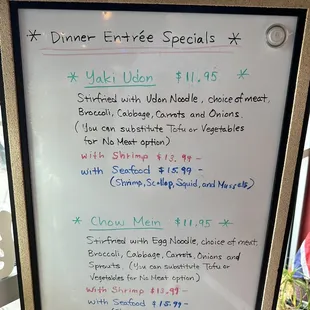 * Dinner Entrée Specials *
* Yaki Udon $11.95 *
Stirfried with Udon Noodle, choice of meat,
Broccoli, Cabbage, Carrots and Onions.
(You can substitute Tofu or Vegetables
for No Meat option)
with Shrimp $13.99-
with Seafood $15.99-
(Shrimp, Scallop, Squid, and Mussels)
* Chow Mein $11.95 *
Stirfried with Egg Noodle, choice of meat,
Broccoli, Cabbage, Carrots, Onions and
Sprouts. (You can substitute Tofu or
Vegetables for No Meat option)
with Shrimp $13.99-
with Seafood $15.99-